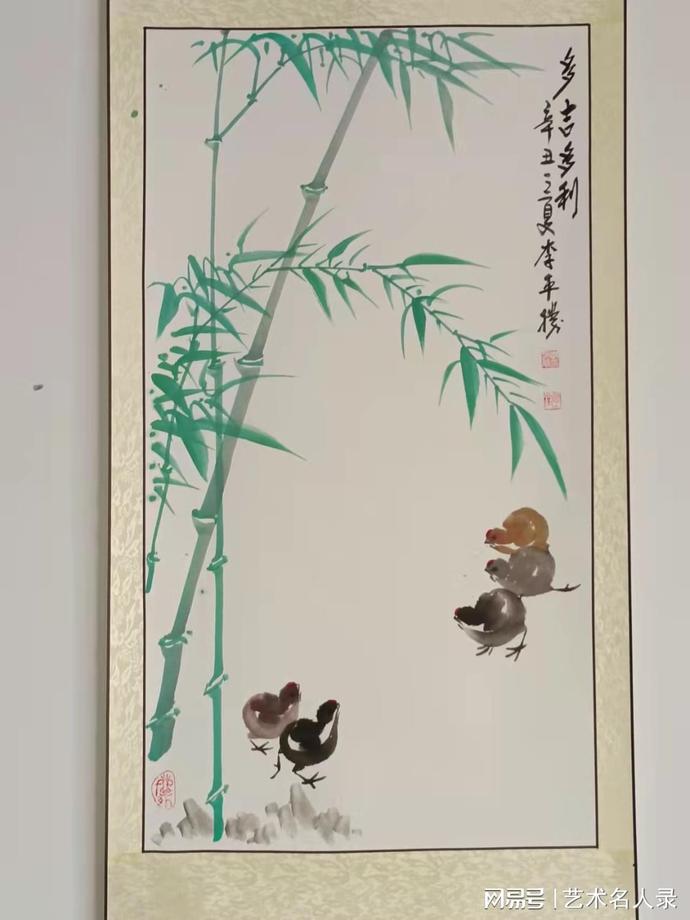 多吉多利
辛丑之夏李平
网易号 | 艺术名人录